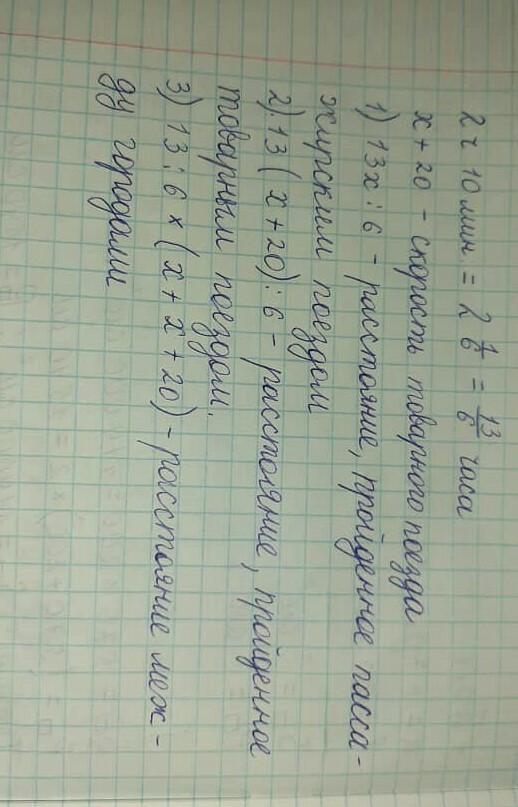 2 ч 10 мин. = 2 1/6 = 13/6 часа
x + 20 - скорость товарного поезда
1) 13x : 6 - расстояние, пройденное пасса-
жирским поездом
2). 13 (x + 20) : 6 - расстояние, пройденное
товарным поездом.
3) 13 : 6 × (x + x + 20) - расстояние меж-
ду городами